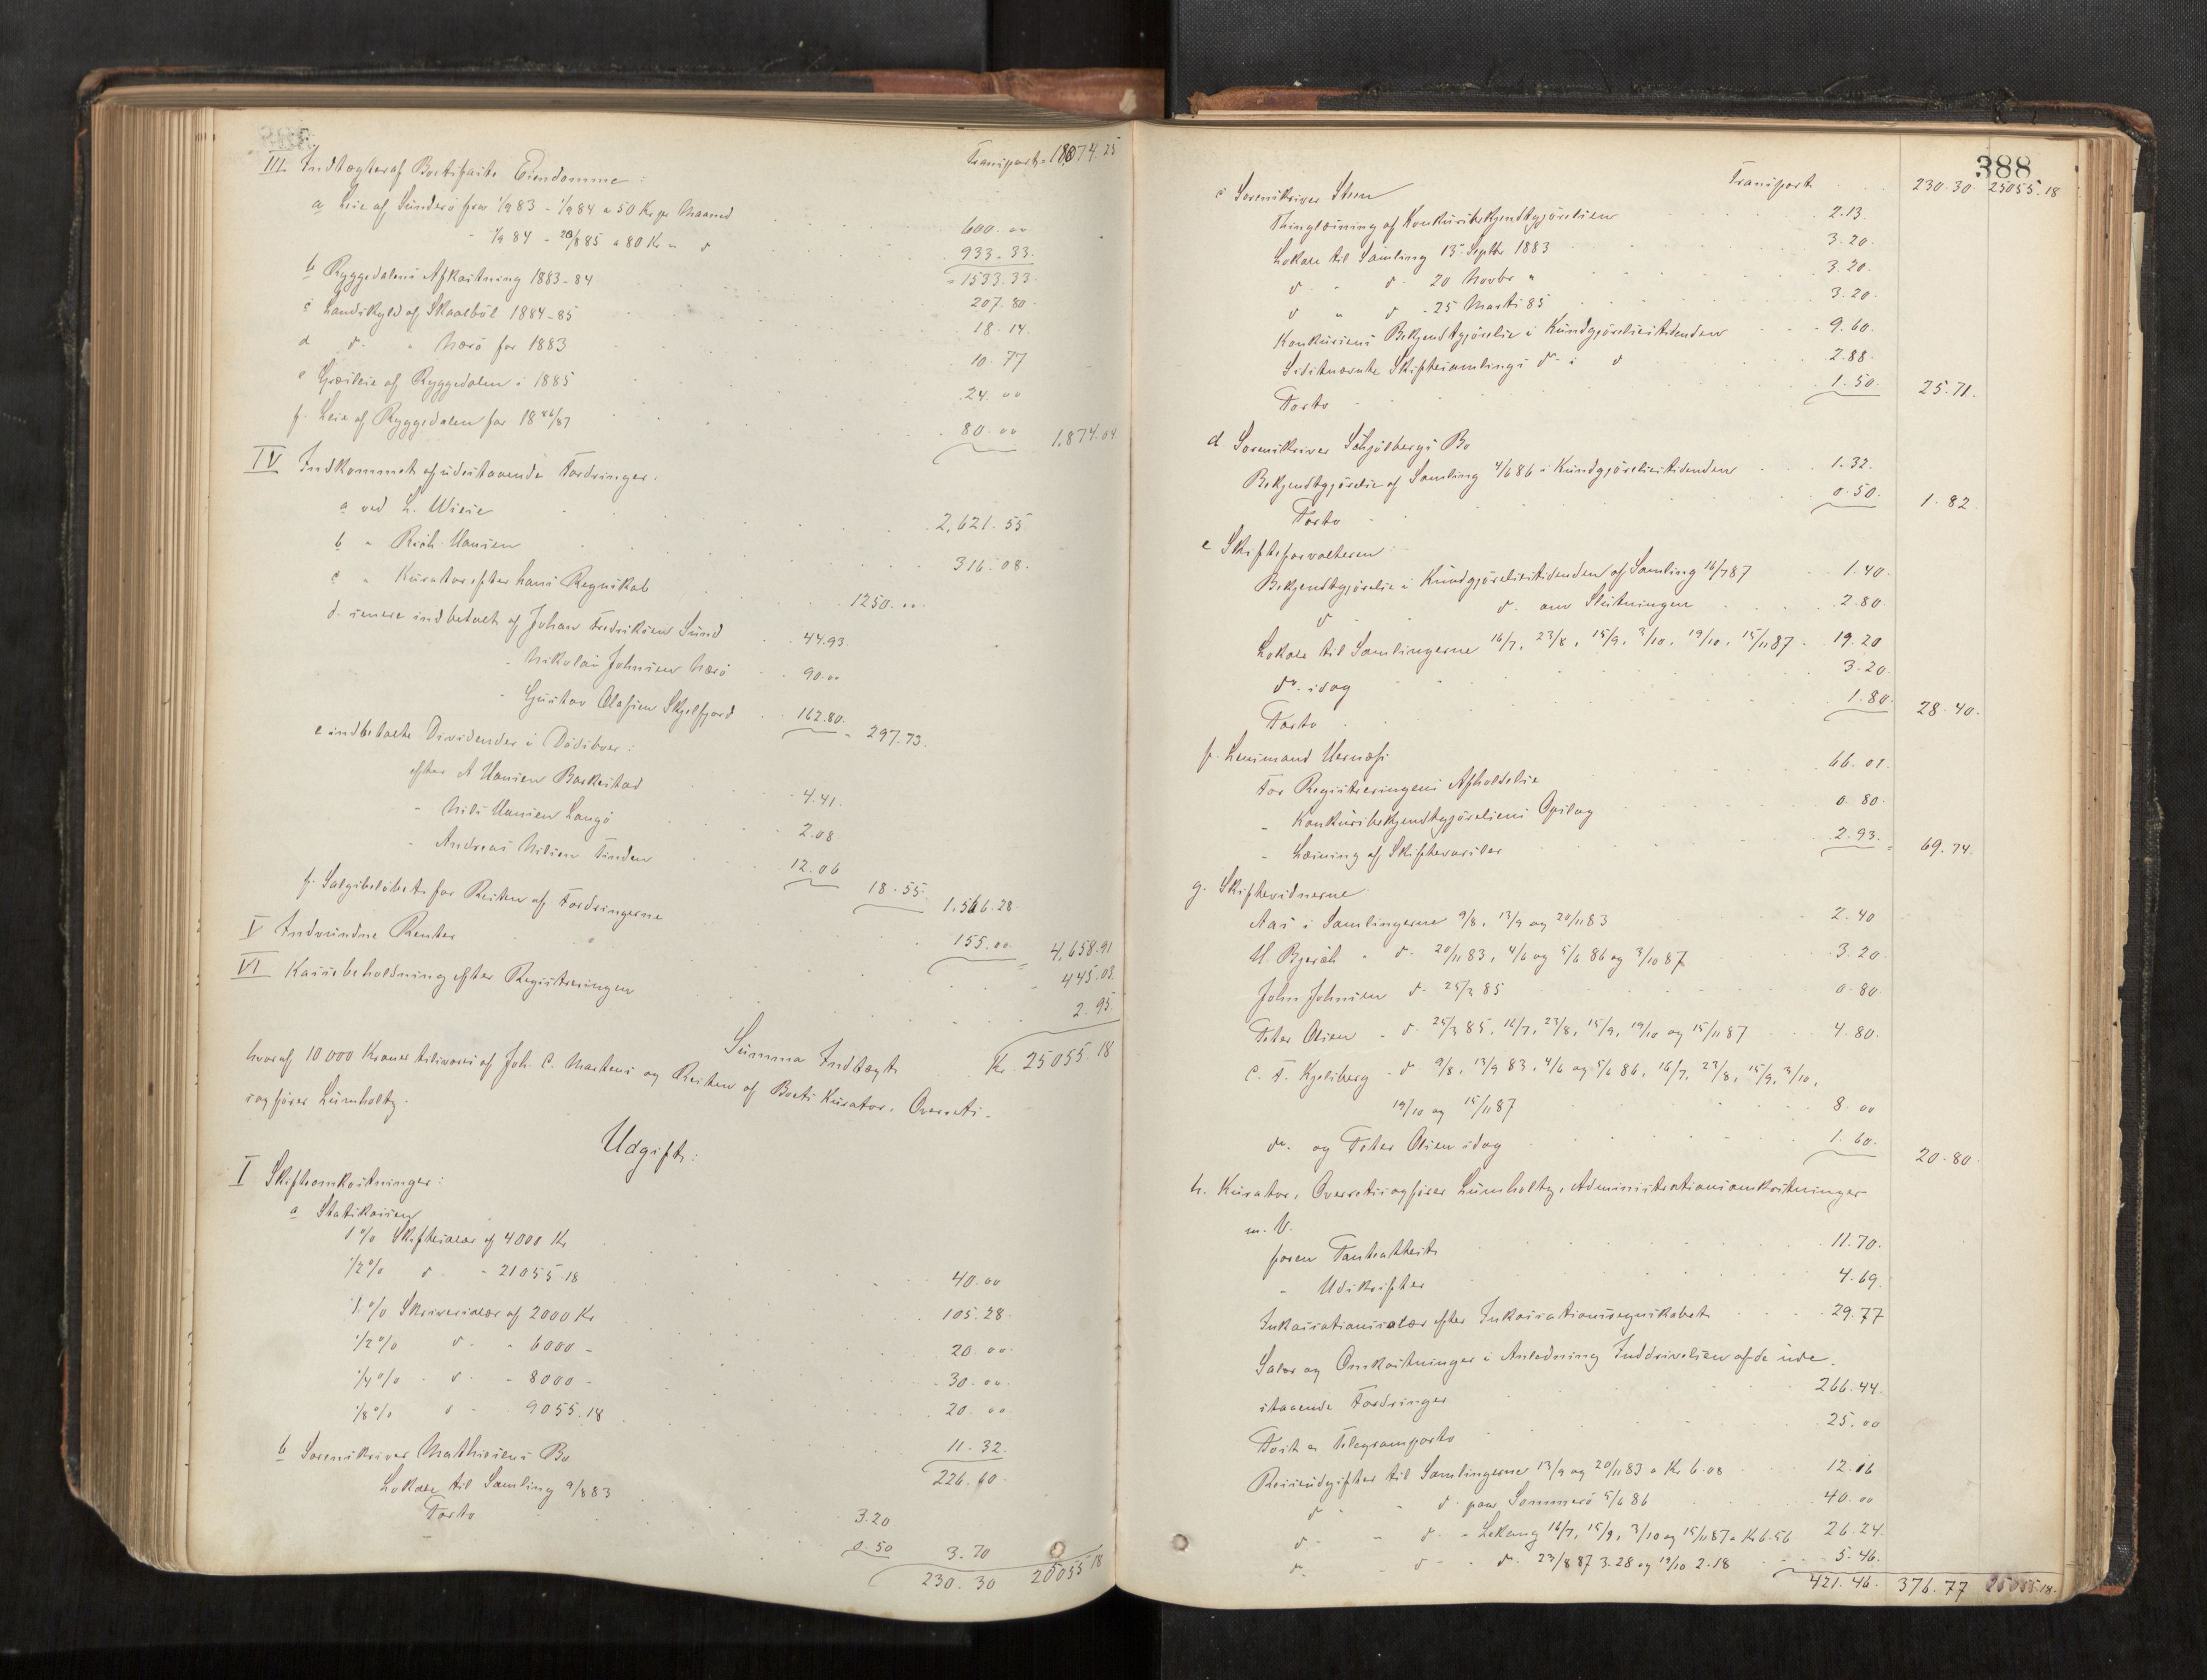 Transport 18074.25
III Indtægter af Boets faste Eiendomme:
a Leie af Sundsrö fra 1/9 83 - 1/9 84 a 50 Kr pr Maaned 600.00
" 1/9 84 - 20/8 85 a 80 Kr " d 933.33
1533.33
b Ryggedalens Afkastning 1883-84 207.80
c Landskyld af Skaalböl 1884-85 18.14
d do " Nærö for 1883 10.77
e Græsleie af Ryggedalen i 1885 24.00
f. Leie af Ryggedalen for 1886/87 80.00 1,874.04
IV Indkommet af udestaaende Fordringer:
a ved L. Wiese 2,621.55
b " Rich. Hansen 316.08
c " Kurator efter hans Regnskab 1250.00
d senere indbetalt af Johan Fredriksen Sund 44.93
" Nikolai Johnsen Nærö 90.00
" Gustav Olafsen Skjelfjord 162.80 297.73
e indbetalte Dividender i Dödsboer:
efter A Hansen Barkestad 4.41
" Nils Hansen Langö 2.08
" Andreas Nilsen Tinden 12.06 18.55 1,566.28
f. Salgsbelöbet for Resten af Fordringerne 155.00 4,658.91
V Indvundne Renter 445.03
VI Kassebeholdning efter Registreringen 2.95
Summa Indtægt Kr. 25055.18
hvoraf 10000 Kroner tilsvares af Joh. C. Martens og Resten af Boets Kurator, Overrets-
sagförer Lumholtz.
Udgift:
I Skifteomkostninger:
a Statskassen
1 % Skiftesalær af 4000 Kr 40.00
1/2 % d " 21055.18 105.28
1 % Skriversalær af 2000 Kr 20.00
1/2 % d " 6000 - 30.00
1/4 % d " 8000 - 20.00
1/8 % d " 9055.18 11.32
226.60
b Sorenskriver Mathiesens Bo
Lokale til Samling 9/8 83 3.20
Porto 0.50 3.70
230.30 25055.18
388
Transport 230.30 25055.18
c Sorenskriver Steen
Thinglæsning af Konkursbekjendtgjörelsen 2.13
Lokale til Samling 13de Septbr 1883 3.20
d " d 20 Novbr " 3.20
d " d 25 Marts 85 3.20
Konkursens Bekjendtgjörelse i Kundgjörelsestidenden 9.60
Sidstnævnte Skiftesamlings do i d 2.88
Porto 1.50 25.71
d Sorenskriver Schjölbergs Bo
Bekjendtgjörelse af Samling 4/6 86 i Kundgjörelsestidenden 1.32
Porto 0.50 1.82
e Skifteforvalteren:
Bekjendtgjörelse i Kundgjörelsestidenden af Samling 16/7 87 1.40
d d om Slutningen 2.80
Lokale til Samlingerne 16/7, 23/8, 15/9, 3/10, 19/10, 15/11 87 19.20
do idag 3.20
Porto 1.80 28.40
f. Lensmand Hernæs
For Registreringens Afholdelse 66.01
" Konkursbekjendtgjörelsens Opslag 0.80
" Læsning af Skiftevarsler 2.93 69.74
g. Skiftevidnerne
Aas i Samlingerne 9/8, 13/9 og 20/11 83 2.40
H. Bjerch " d 20/11 83, 4/6 og 5/6 86 og 3/10 87 3.20
John Johnsen d 25/3 85 0.80
Peter Olsen " d 25/3 85, 16/7, 23/8, 15/9, 19/10 og 15/11 87 4.80
C. F. Kjelsberg - d 9/8, 13/9 83, 4/6 og 5/6 86, 16/7, 23/8, 15/9, 3/10,
19/10 og 15/11 87 8.00
do og Peter Olsen idag 1.60 20.80
h. Kurator, Overretssagförer Lumholtz, Administrationsomkostninger
m. V.
foren Panteattest 11.70
" Udskrifter 4.69
Inkassationssalær efter Inkassationsregnskabet 29.77
Salær og Omkostninger i Anledning Inddrivelsen af de ude-
staaende Fordringer 266.44
Post & Telegramporto 25.00
Reiseudgifter til Samlingerne 13/9 og 20/11 83 a Kr 6.08 12.16
d " d paa Sommerö 5/6 86 40.00
d " d " Lekang 16/7, 15/9, 3/10 og 15/11 87 a Kr 6.56 26.24
d " d " d 23/8 87 3.28 og 19/10 2.18 5.46
421.46 376.77 25055.18